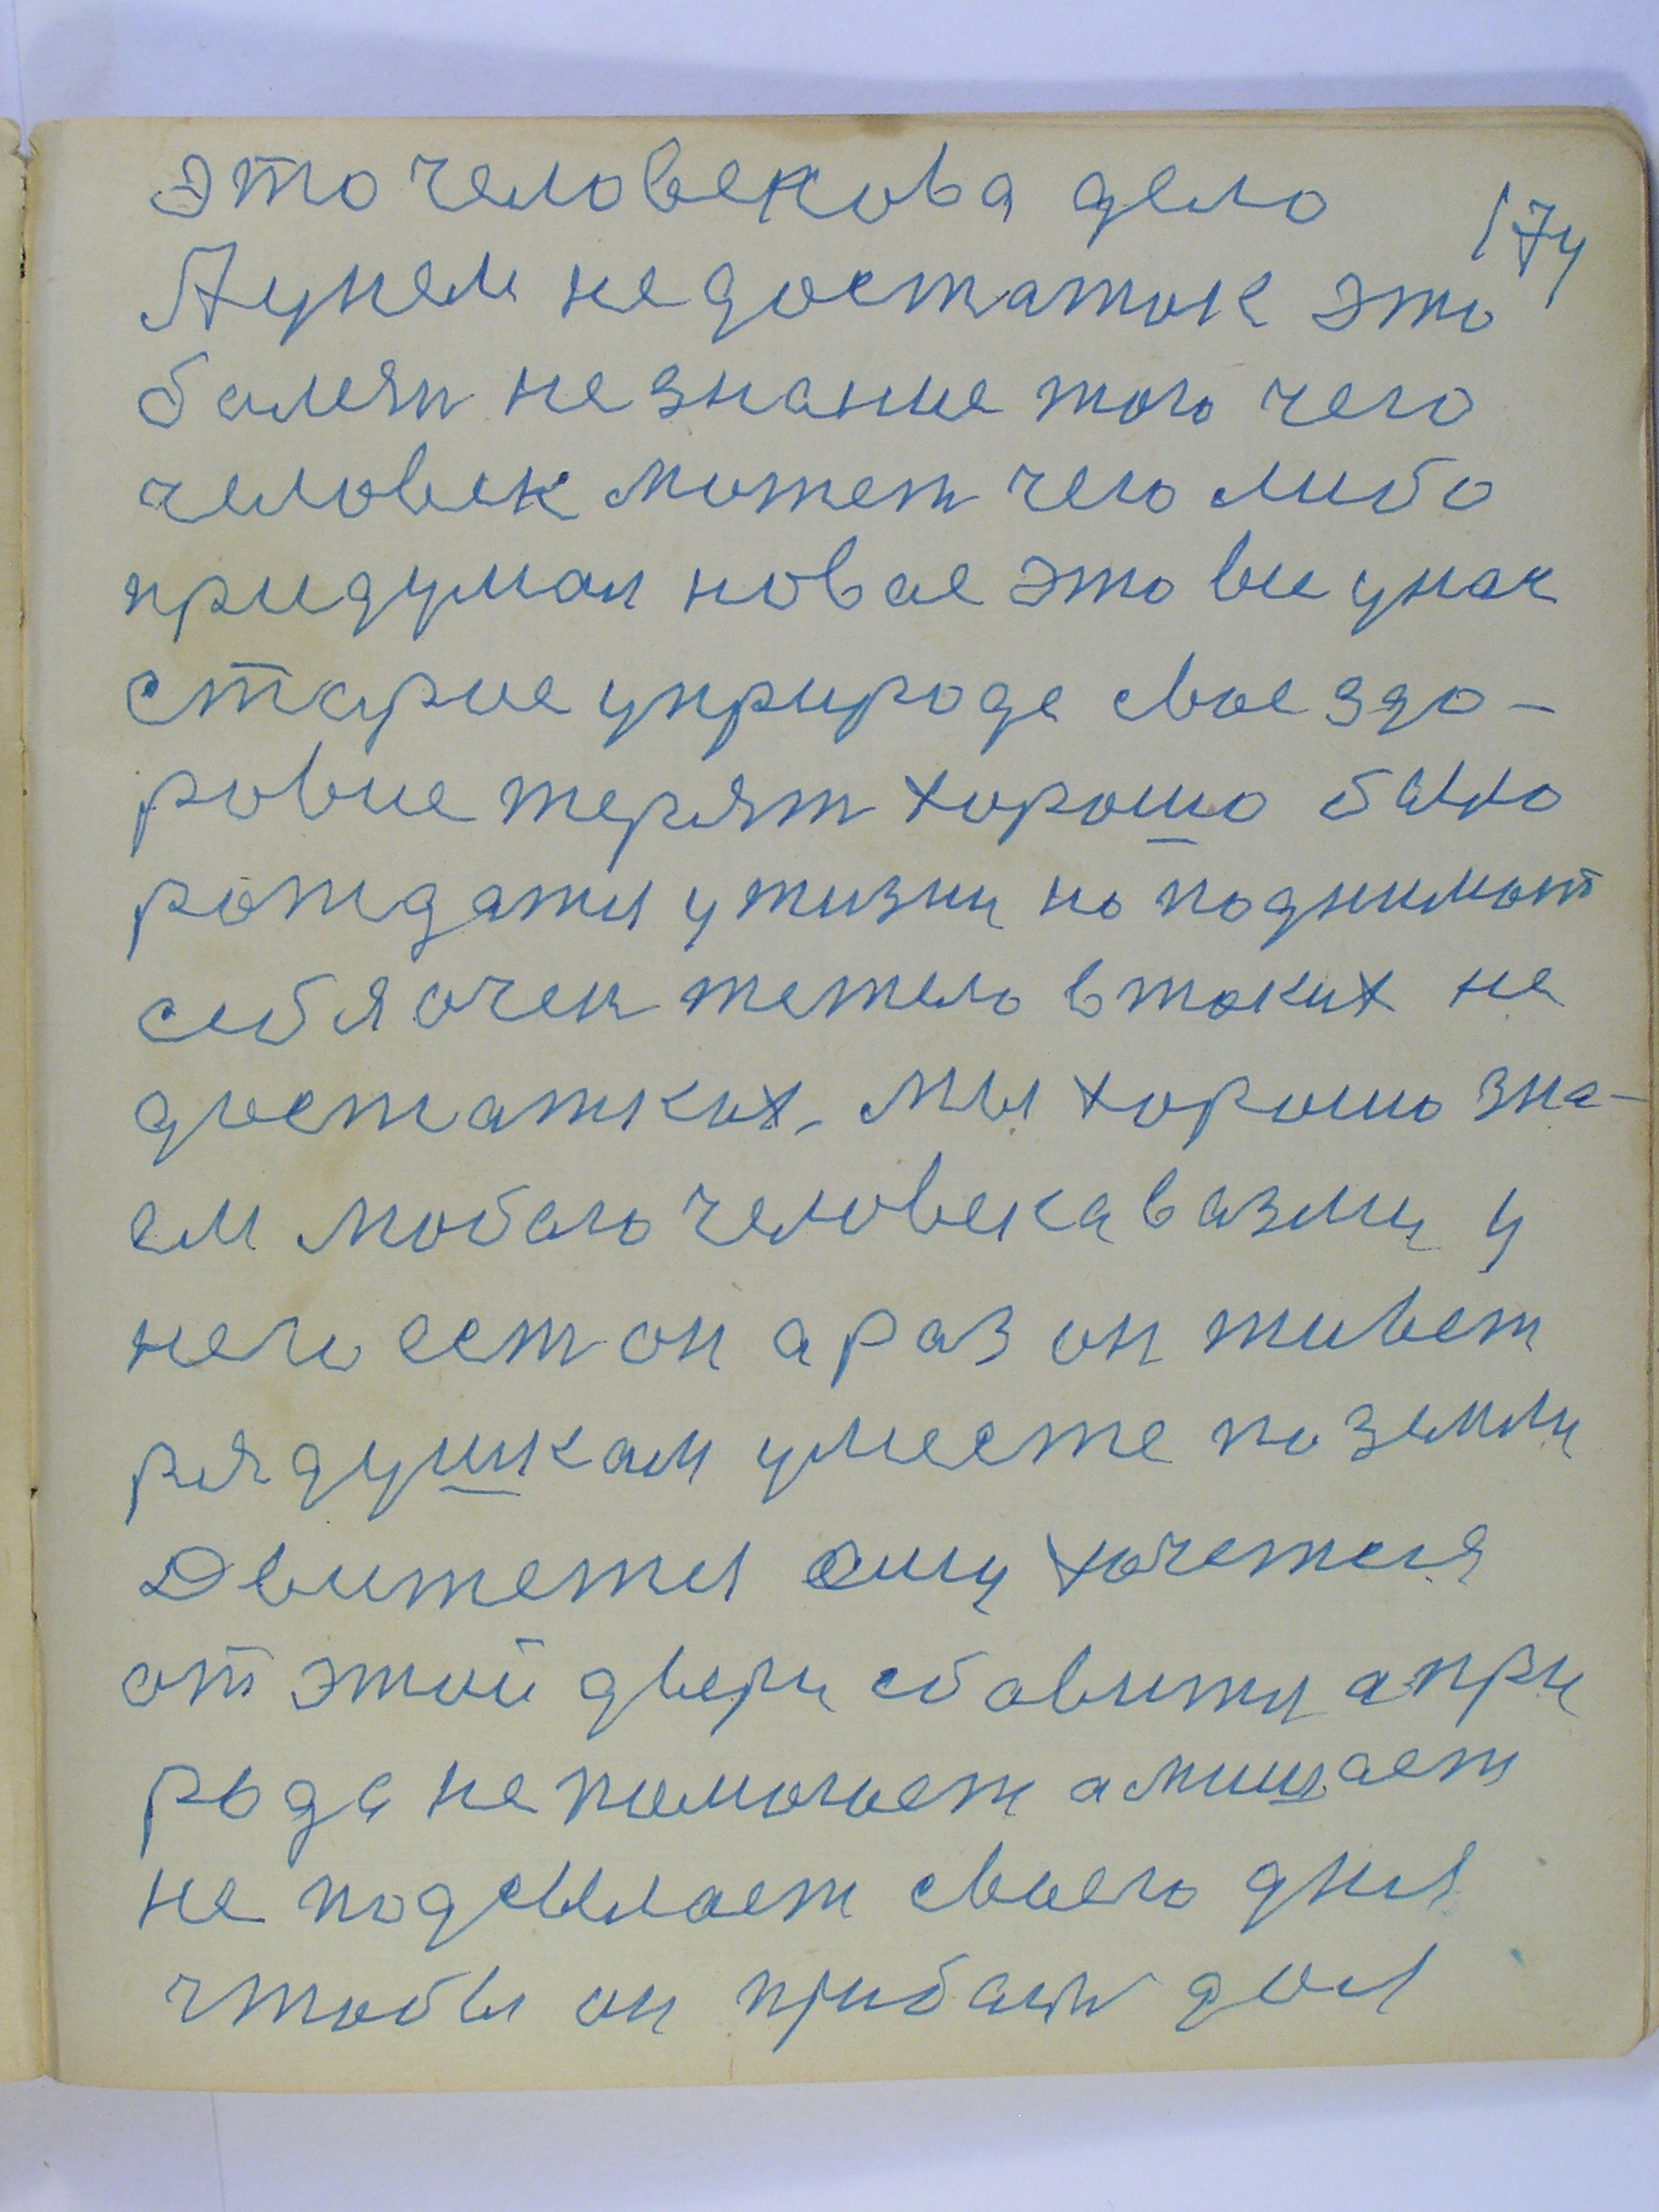 это человекова дело
174
Аунем недостаток это
болезн не знание того чего
человек может чего либо
придумал новое это ие унас
старие уприроде свое здо-
ровие терят хорошо было
рождатя ужизни но поднимат
себя очен тежело втаких не
достатках. Мы хорошо зна-
ем любого человека вазми у
него ест он а раз он живет
рядушкам уместе по земли
Движетя ему хочетися
от этой двери сбавитя апри
рода непомогает а мишает
не подсылает своего дня
чтобы он для